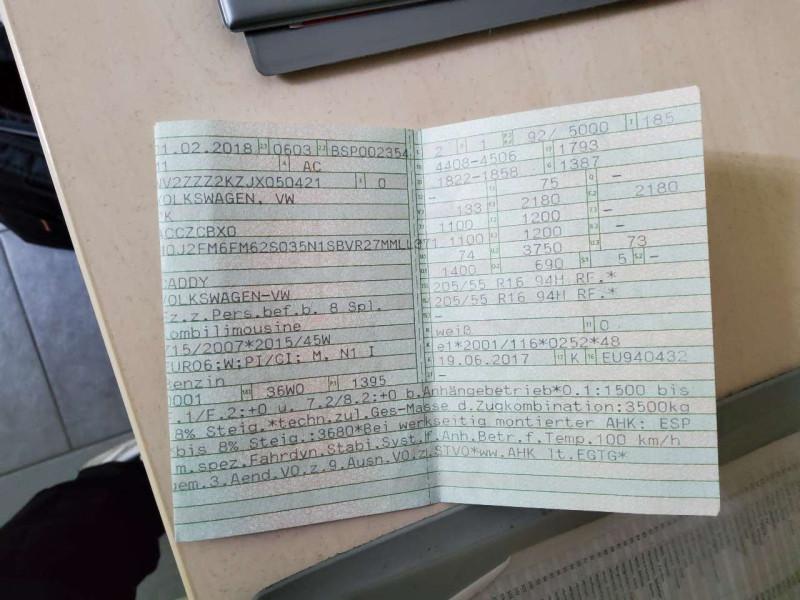 1.02.2018 0603 BSP002354
1 AC
WV2ZZZ2KZJX050421 0
OLKSWAGEN, VW
K
CCZCBX0
0J2FM6FM62S035N1SBVR27MMLL371
ADDY
OLKSWAGEN-VW
z.z.Pers.bef.b. 8 Spl.
ombilimousine
715/2007*2015/45W
EURO6;W;PI/CI; M, N1 I
enzin
0001 36W0 1395
2 1 92/ 5000 185
4408-4506 1793
1822-1858 1387
- 75 -
133 2180 2180
1100 1200 -
1100 1200 -
74 3750 73
1400 690 5 -
205/55 R16 94H RF.*
205/55 R16 94H RF.*
-
weiß 0
e1*2001/116*0252*48
19.06.2017 K EU940432
-
.1/F.2:+0 u. 7.2/8.2:+0 b.Anhängebetrieb*0.1:1500 bis
8% Steig.*techn.zul.Ges-Masse d.Zugkombination:3500kg
bis 8% Steig.:3680*Bei werkseitig montierter AHK: ESP
m.spez.Fahrdyn.Stabi.Syst.f.Anh.Betr.f.Temp.100 km/h
em.3.Aend.VO.z.9.Ausn.VO.z.STVO*ww.AHK lt.EGTG*